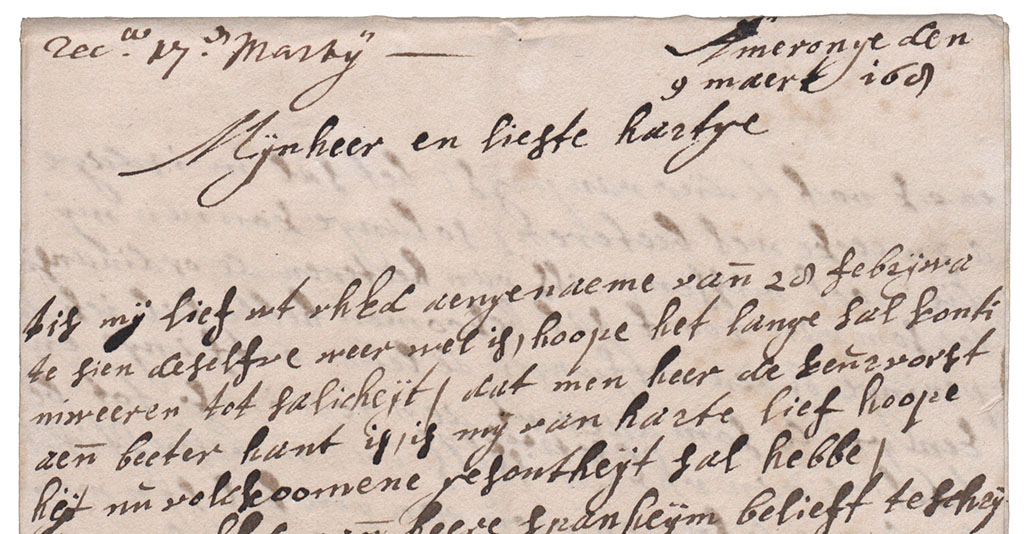 Rec.ᵃᵒ 17.ᵉⁿ Marty
Ameronge den
9 maert 168
Mÿnheer en liefste hartge
tis mÿ lief ut uhEd aengenaeme vann 28 febrÿwa
te sien deselfve weer wel is, hoope het lange sal konti
niweeren tot salicheÿt / dat men heer de keurvorst
aen beeter hant is, is mÿ van harte lief hoope
hÿt nu volckoomene gesontheÿt sal hebbe /
heere spanheÿm belieft te schrÿ